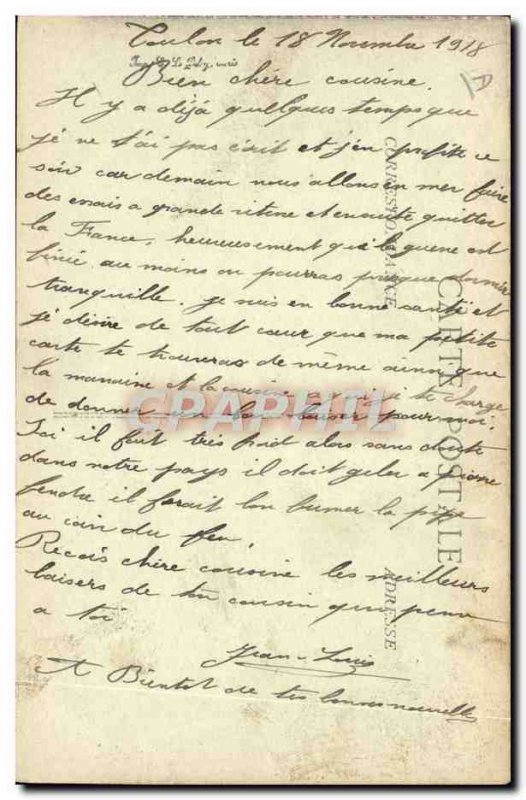 Toulon le 18 Novembre 1918
Bien chère cousine.
Il y a déjà quelques temps que
je ne t'ai pas écrit et j'en profite ce
soir car demain nous allons en mer faire
des essais a grande vitesse et ensuite quitter
la France, heureusement que la guerre est
finie au moins on pourras presque dormir
tranquille. je suis en bonne santé et
je désire de tout cœur que ma petite
carte te trouveras de même ainsi que
la marraine et le cousin a qui je te charge
de donner un bon baiser pour moi.
Ici il fait très froid alors sans doute
dans notre pays il doit geler a pierre
fendre il ferait bon fumer la pipe
au coin du feu,
Reçois chère cousine les meilleurs
baisers de ton cousin qui pense
a toi
Jean-Louis
A Bientot de tes bonnes nouvelles
CARTE POSTALE
CORRESPONDANCE
ADRESSE
CARTAPHIL